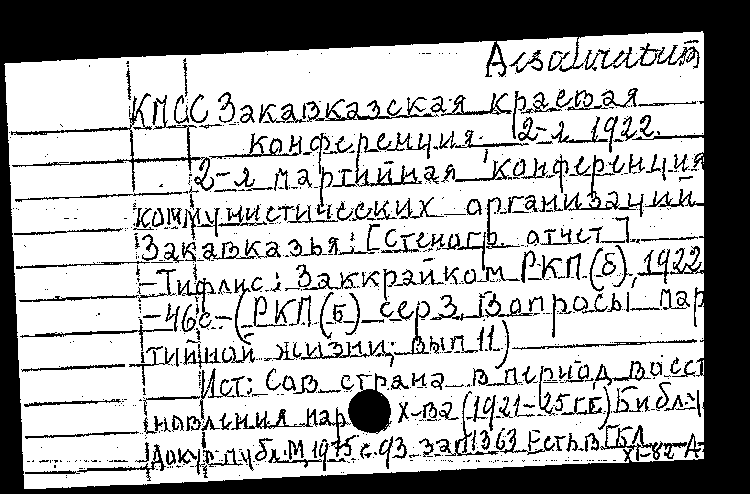 КПСС Закавказская краевая
конференция. 2-я. 1922.
2-я партийная конференция
коммунистических организаций
Закавказья: [Стеногр. отчет].
-Тифлис: Заккрайком РКП(б), 1922
-46с-(РКП(б) сер 3. Вопросы пар
тийной жизни; вып 11)
Ист: Сов. страна в период восст
новления нар х-ва (1921-25 гг.) Библ-
докум публ. М, 1975 с. 93. зап 1363 Есть в ГБЛ
XI-82